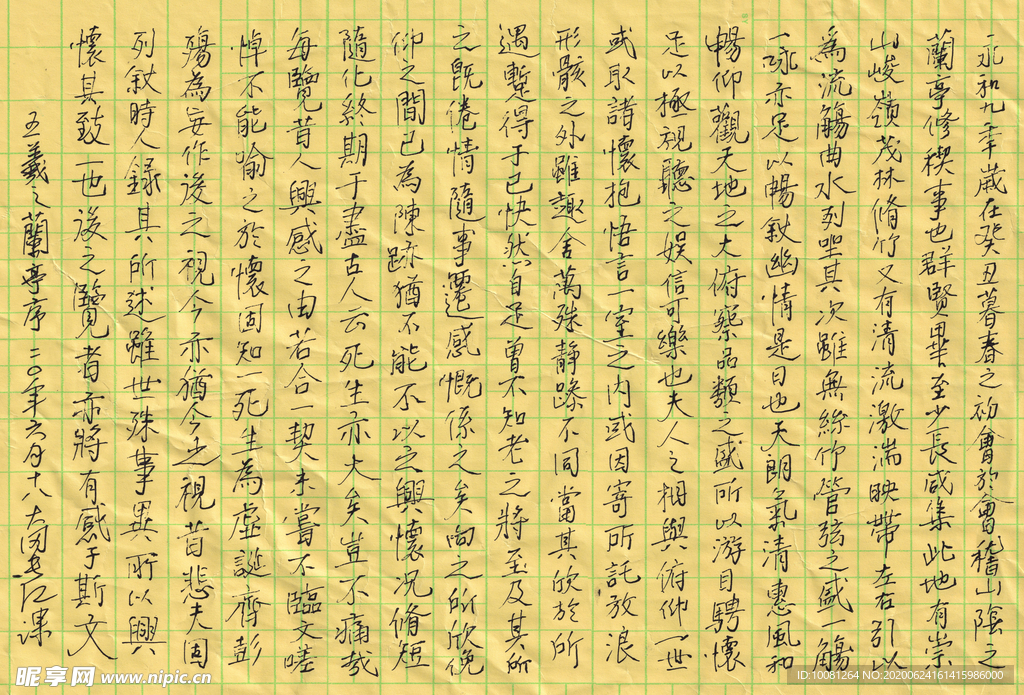 永和九年歲在癸丑暮春之初會於會稽山陰之
蘭亭修稧事也群賢畢至少長咸集此地有崇
山峻嶺茂林脩竹又有清流激湍映帶左右引以
為流觴曲水列坐其次雖無絲竹管弦之盛一觴
一咏亦足以暢敘幽情是日也天朗氣清惠風和
暢仰觀天地之大俯察品類之盛所以游目騁懷
足以極視聽之娱信可樂也夫人之相與俯仰一世
或取諸懷抱悟言一室之内或因寄所託放浪
形骸之外雖趣舍萬殊静躁不同當其欣於所
遇蹔得于己快然自足曾不知老之將至及其所
之既倦情隨事遷感慨係之矣向之所欣俛
仰之間已為陳跡猶不能不以之興懷況脩短
隨化終期于盡古人云死生亦大矣豈不痛哉
每覽昔人興感之由若合一契未嘗不臨文嗟
悼不能喻之於懷固知一死生為虛誕齊彭
殤為妄作後之視今亦猶今之視昔悲夫固
列敘時人録其所述雖世殊事異所以興
懷其致一也後之覽者亦將有感于斯文
羲之蘭亭序二〇年六月十八
昵享网 www.nipic.cn
ID:10081264 NO:20200624161415986000